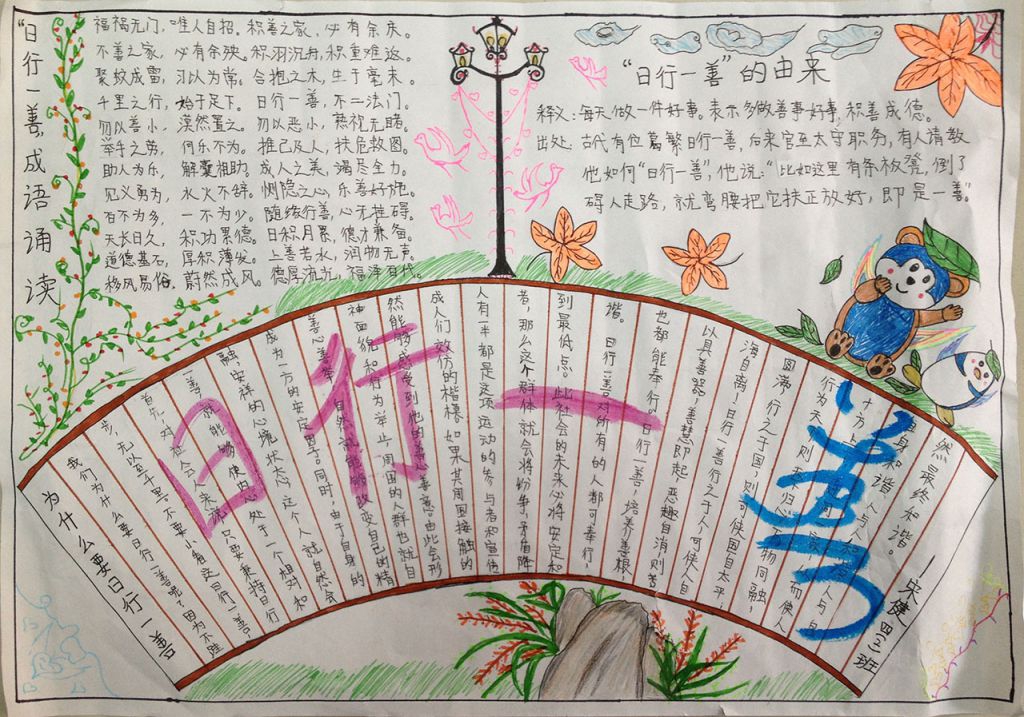 “日行一善”成语诵读
福祸无门，唯人自招。积善之家，必有余庆。
不善之家，必有余殃。积羽沉舟，积重难返。
聚蚊成雷，习以为常。合抱之木，生于毫末。
千里之行，始于足下。日行一善，不二法门。
勿以善小，漠然置之。勿以恶小，熟视无睹。
举手之劳，何乐不为。推己及人，扶危救困。
助人为乐，解囊相助。成人之美，竭尽全力。
见义勇为，水火不辞。恻隐之心，乐善好施。
百不为多，一不为少。随缘行善，心无挂碍。
天长日久，积功累德。日积月累，德才兼备。
道德基石，厚积薄发。上善若水，润物无声。
移风易俗，蔚然成风。德厚流光，福泽百代。
“日行一善”的由来
释义：每天做一件好事。表示多做善事好事，积善成德。
出处：古代有位葛繁日行一善，后来官至太守职务，有人请教
他如何“日行一善”，他说：“比如这里有条板凳，倒了
碍人走路，就弯腰把它扶正放好，即是一善”。
日行一善
为什么要日行一善
我们为什么要日行一善呢？因为不跬
步，无以至千里，不要小看这日行一善，
首先，对社会来说，只要秉持日行
一善，就能够使内心处于一个相对和
融、安祥的心境状态，这个人就自然会
成为一方的安定因子。同时，由于自身的
善心善举，自然就能够改变自己的精
神面貌和行为举止，周围的人群也就自
然能够感受到他的善意，由此会形
成人们效仿的楷模。如果其周围接触的
人有一半都是这项运动的参与者和宣传
者，那么这个群体就会将纷争、矛盾降
到最低点。此社会的未来必将安定和
谐。日行一善对所有的人都可奉行，
也都能奉行。日行一善，培养善根，
以具善器。善慧即起，恶趣自消，则苦
海自离！日行一善行之于人，可使人自
圆满，行之于国，则可使国自太平；
行为天下，则天归心，万物同融，
然，最终和谐。
宋健 四（三）班